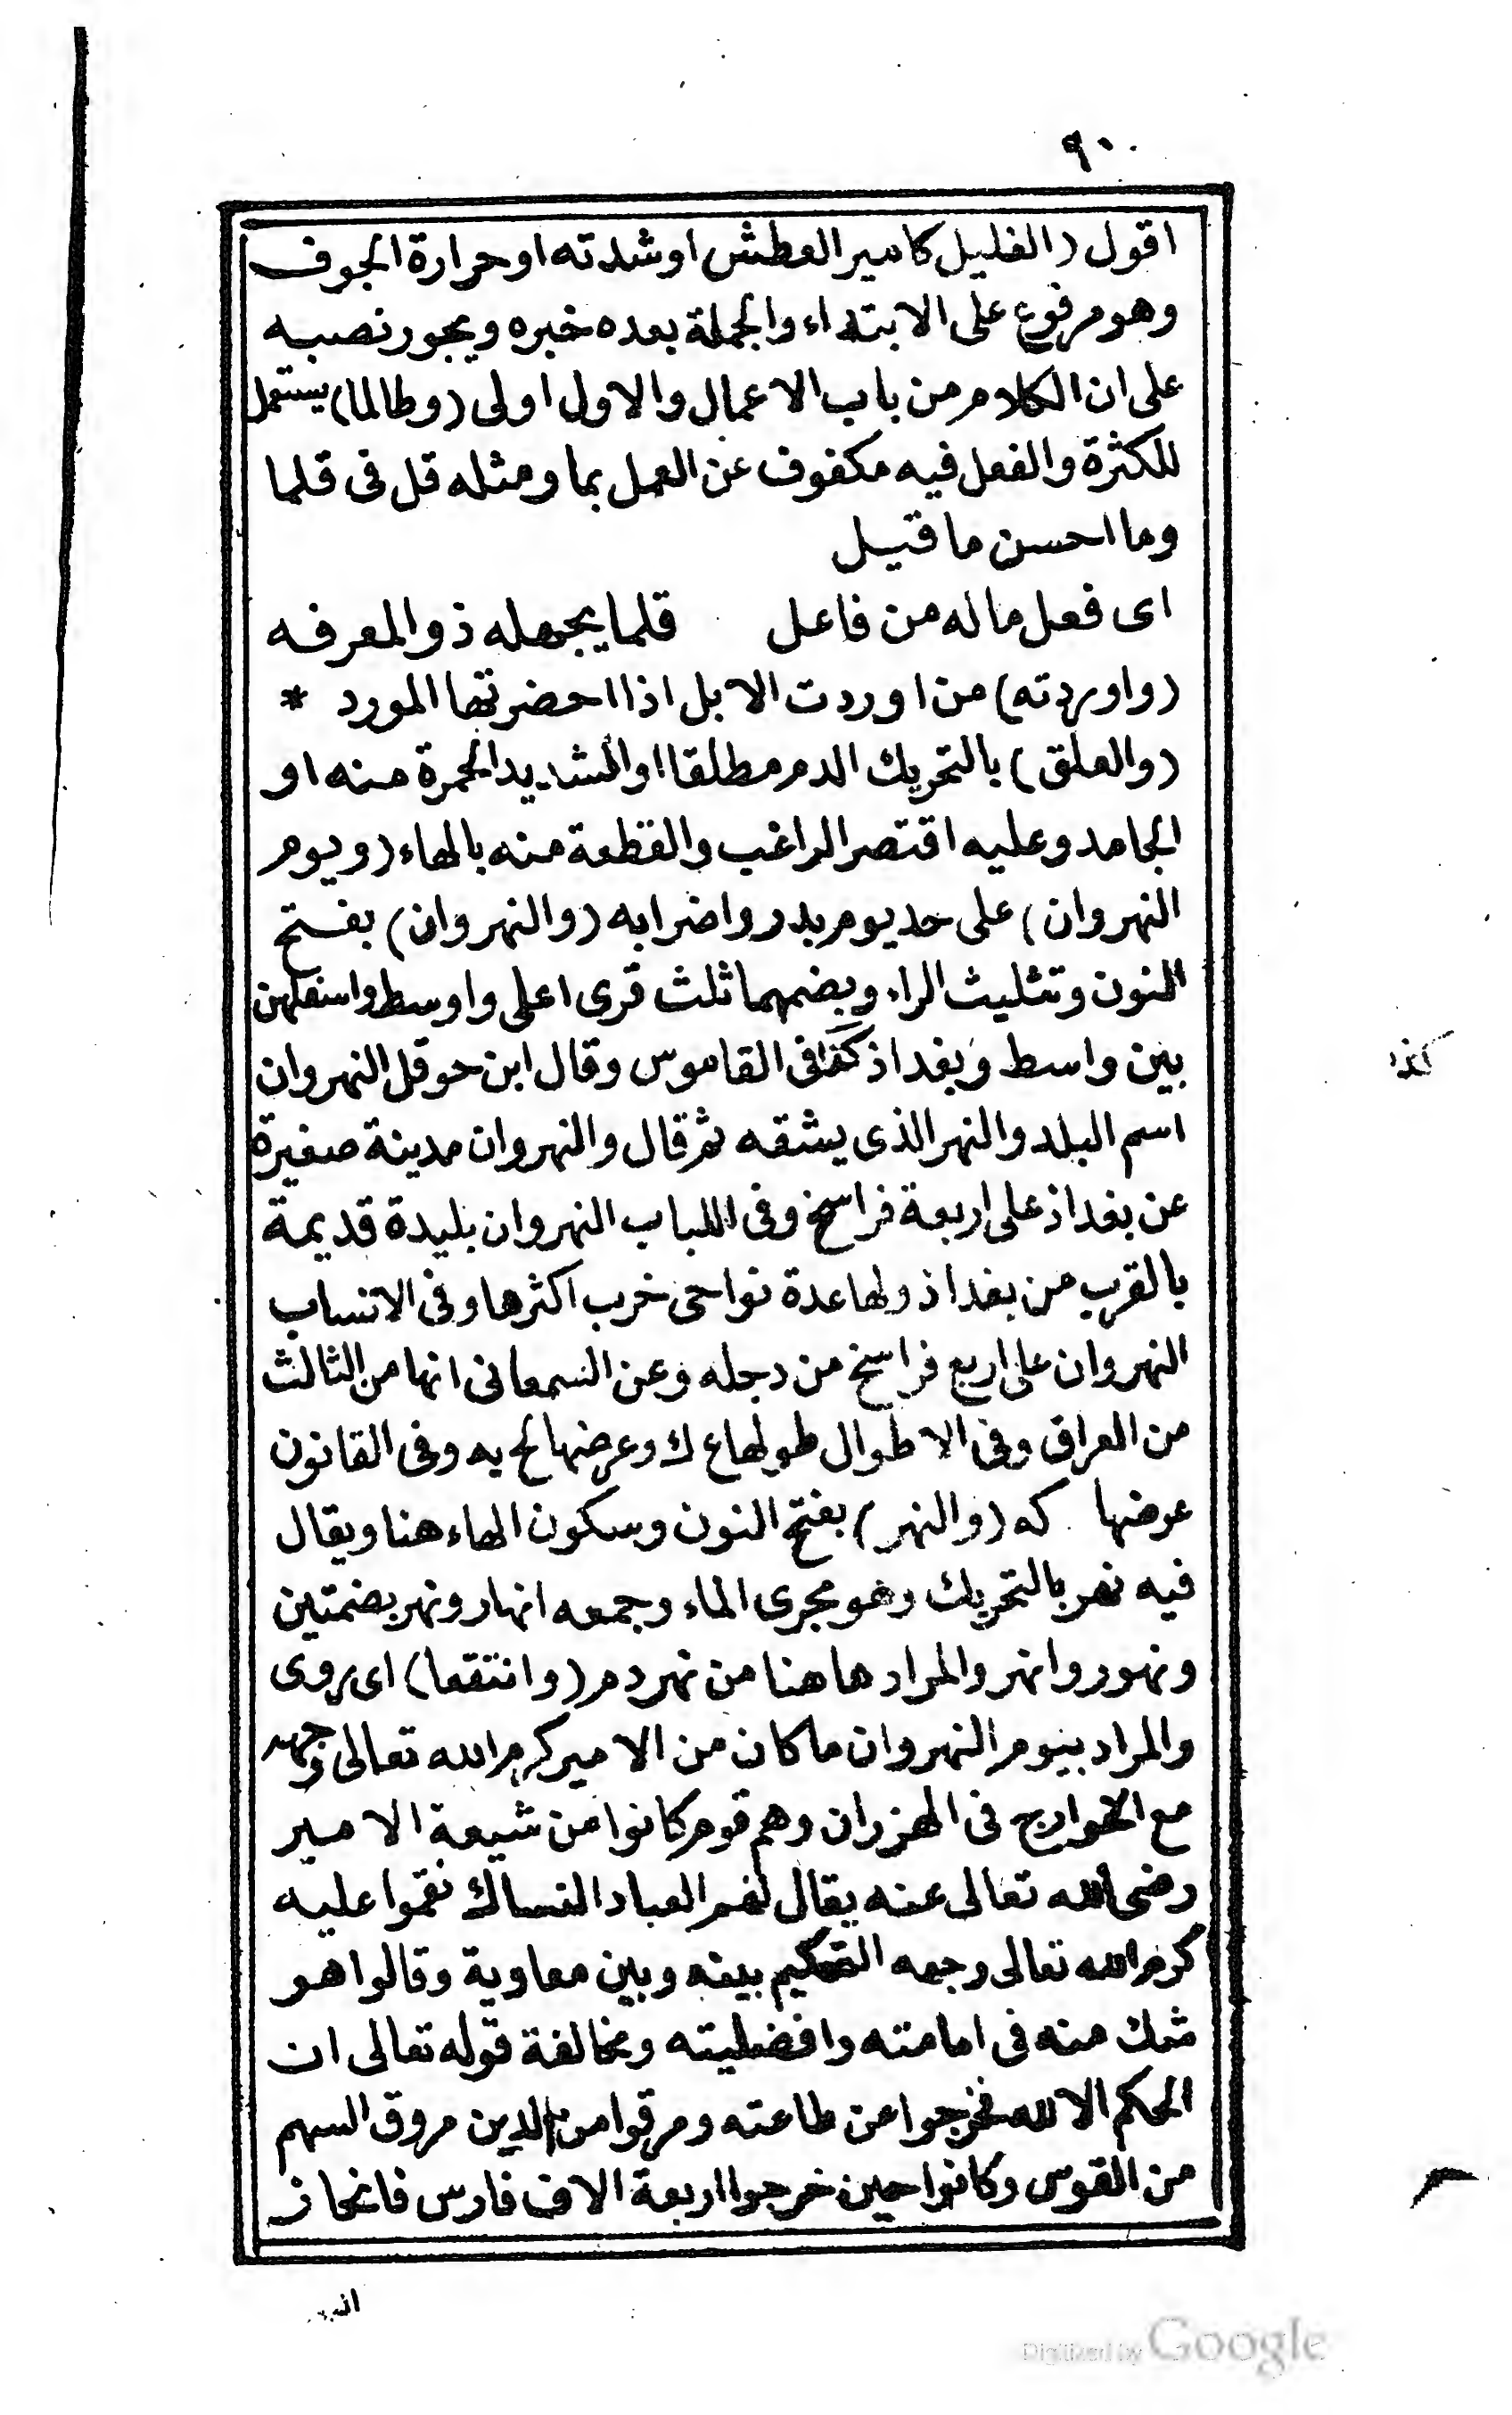 ٩٠
اقول (الغليل كامير العطش او شدته او حرارة الجوف
وهو مرفوع على الابتداء والجملة بعده خبره ويجوز نصبه
على ان الكلام من باب الاعمال والاول اولى (وطالما) يستعمل
للكثرة والفعل فيه مكفوف عن العمل بما ومثله قل فى قلما
وما احسن ما قيل
اى فعل ماله من فاعل قلما يجهله ذو المعرفه
(واوردته) من اوردت الابل اذا احضرتها المورد *
(والعلق) بالتحريك الدم مطلقا او الشديد الحمرة منه او
الجامد وعليه اقتصر الراغب والقطعة منه بالهاء (ويوم
النهروان) على حد يوم بدر واضرابه (والنهروان) بفتح
النون وتثليث الراء وبضمهما ثلث قرى اعلى واوسط واسفلهن
بين واسط وبغداذ كذا فى القاموس وقال ابن حوقل النهروان
اسم البلد والنهر الذى يشقه ثم قال والنهروان مدينة صغيرة
عن بغداذ على اربعة فراسخ وفى اللباب النهروان بليدة قديمة
بالقرب من بغداذ ولها عدة نواحى خرب اكثرها وفى الانساب
النهروان على اربع فراسخ من دجله وعن السمعانى انها من الثالث
من العراق وفى الاطوال طولها ع ك وعرضها لج يه وفى القانون
عرضها كه (والنهر) بفتح النون وسكون الهاء هنا ويقال
فيه نهر بالتحريك وهو مجرى الماء وجمعه انهار ونهر بضمتين
ونهور وانهر والمراد هاهنا من نهر دم (وانتقعا) اى روى
والمراد بيوم النهروان ما كان من الامير كرم الله تعالى وجهه
مع الخوارج فى الهزران وهم قوم كانوا من شيعة الامير
رضى الله تعالى عنه يقال لهم العباد النساك نقموا عليه
كرم الله تعالى وجهه التحكيم بينه وبين معاوية وقالوا هو
شك منه فى امامته وافضليته ومخالفة قوله تعالى ان
الحكم الا لله فخرجوا عن طاعته ومرقوا من الدين مروق السهم
من القوس وكانوا حين خرجوا اربعة الاف فارس فانحاز
كذا
Digitized by Google